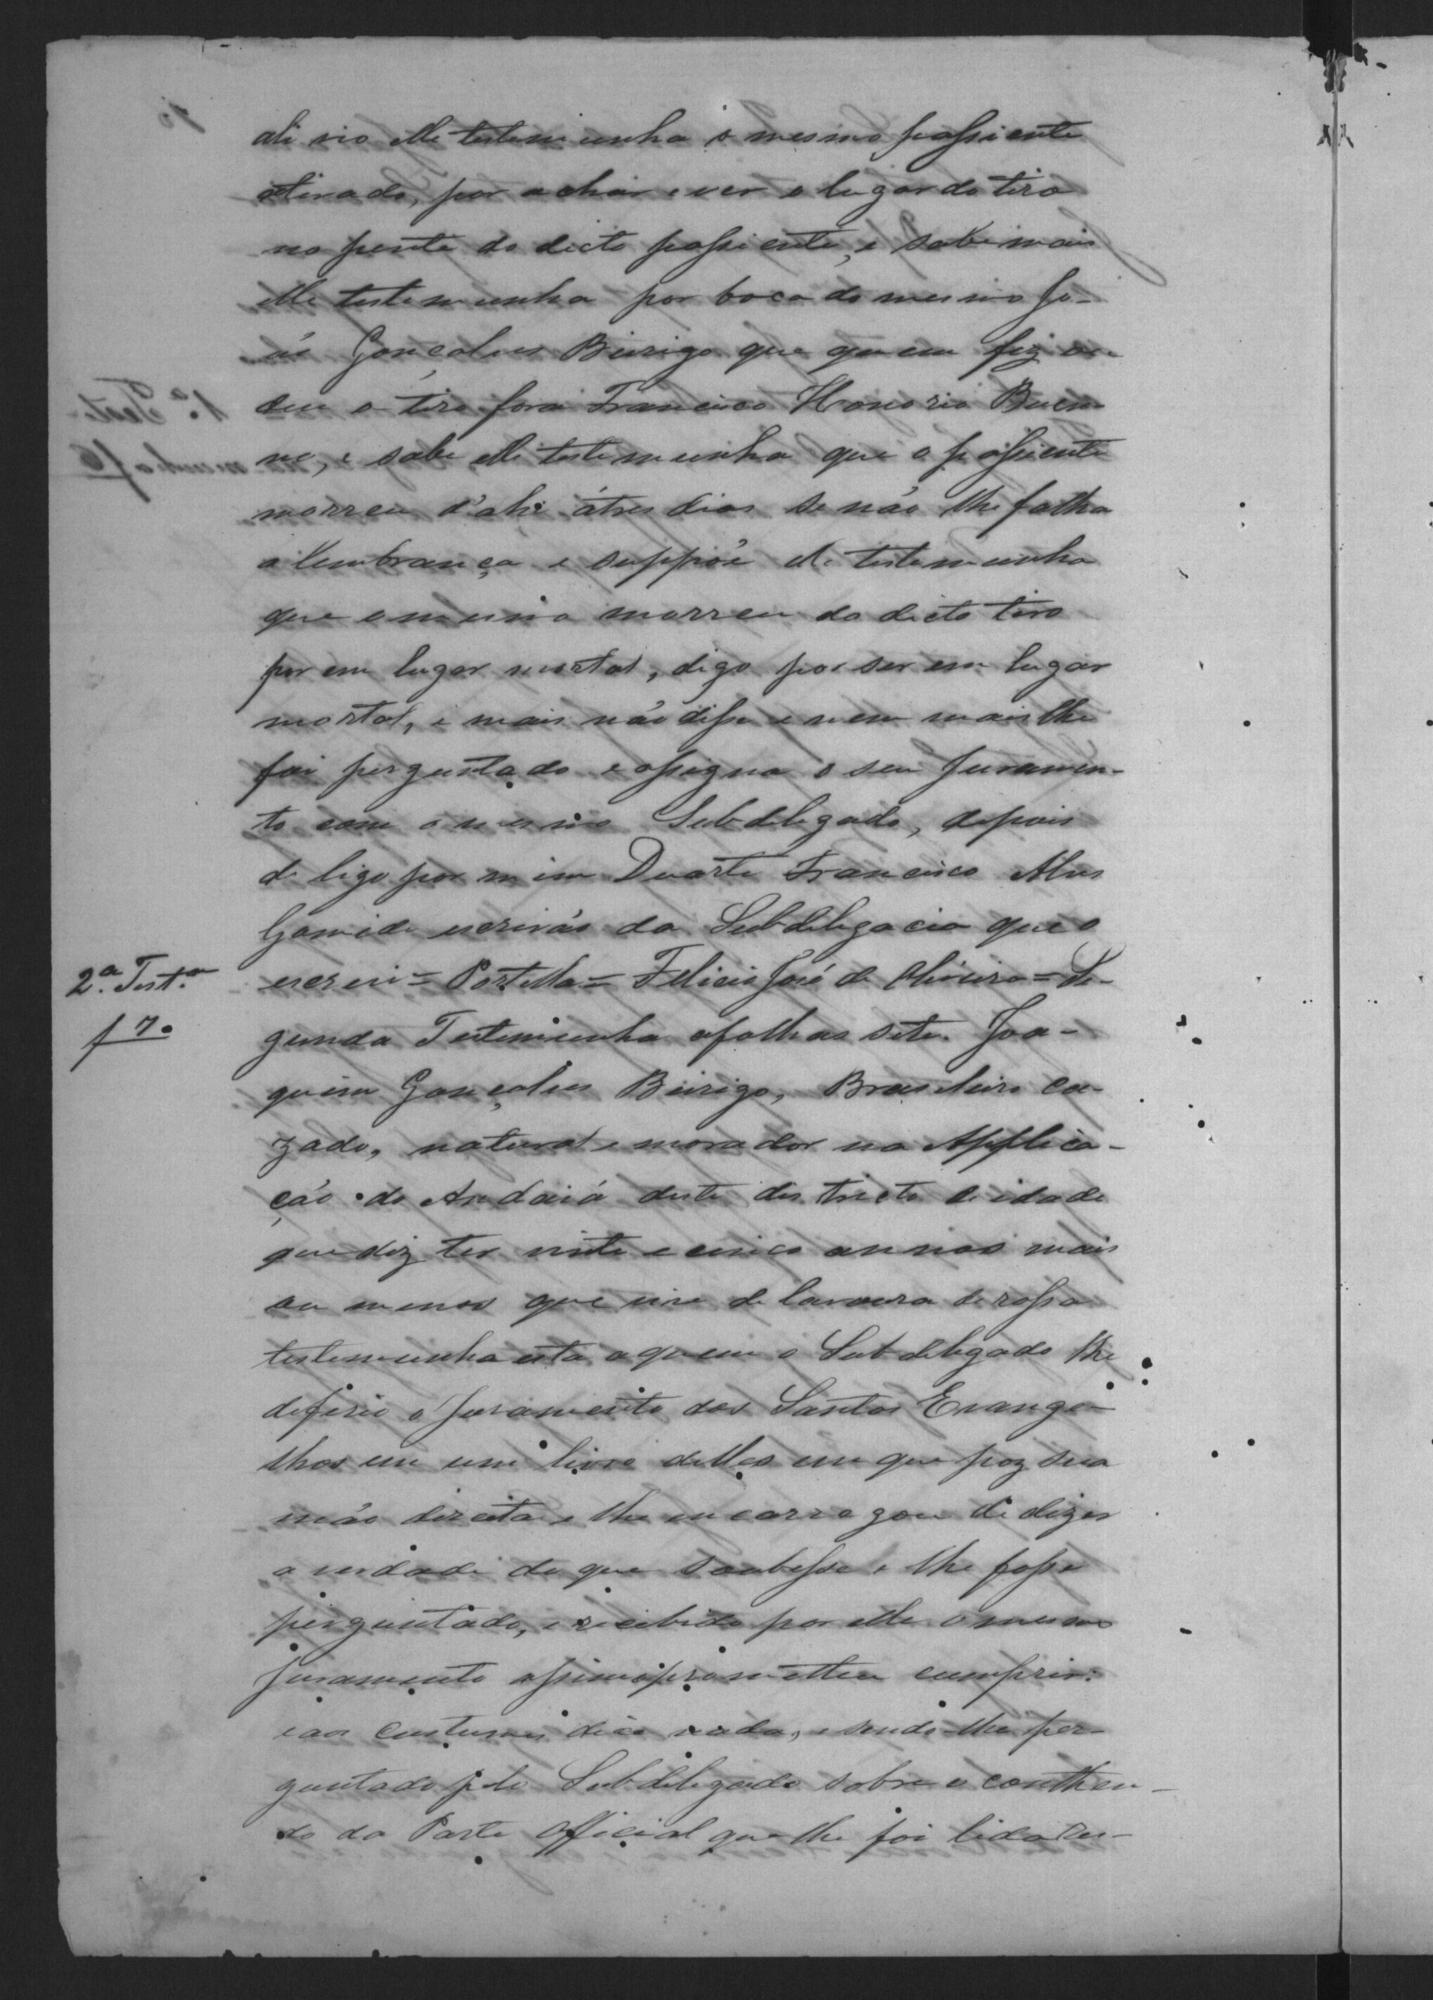 ali vio elle testemunha o mesmo passiente
atirado, por achar e ver o lugar do tiro
no peito do dicto passiente, e sabe mais
elle testemunha por boca do mesmo Jo-
ão Gonçalves Beirigo que quem fez ou
deu o tiro fora Francisco Honorio Buen-
no, e sabe elle testemunha que o passiente
morreu d'ahi átres dias se não lhe falha
a lembrança e suppõe elle testemunha
que o mesmo morreu do dicto tiro
por em lugar mortal, digo por ser em lugar
mortal, e mais não disse e nem mais lhe
foi perguntado e assigna o seu juramen-
to com o mesmo Subdelegado, depois
de ligo por mim Duarte Francisco Alves
Gomide escrivão da Subdelegacia que o
escrevi = Portella = Felicio José de Oliveira = Se-
2.ª Test.ª
f 7.
gunda Testemunha afolhas sete. Joa-
quim Gonçalves Beirigo, Brasileiro ca-
zado, natural e morador na Applica-
ção do Andaiá deste districto de idade
que diz ter vinte e cinco annos mais
ou menos que vive de lavoura de rossa
testemunha esta aquem o Subdelegado lhe
deferio o juramento dos Santos Evange-
lhos em um livro delles em que poz sua
mão direita e lhe encarregou de dizer
a verdade do que soubesse e lhe fosse
perguntado, e recebido por elle o mesmo
juramento assim oprometteu cumprir:
e aos custumes dice nada, e sendo-lhe per-
guntado pelo Subdelegado sobre o contheu-
do da Parte Official que lhe foi lida res-